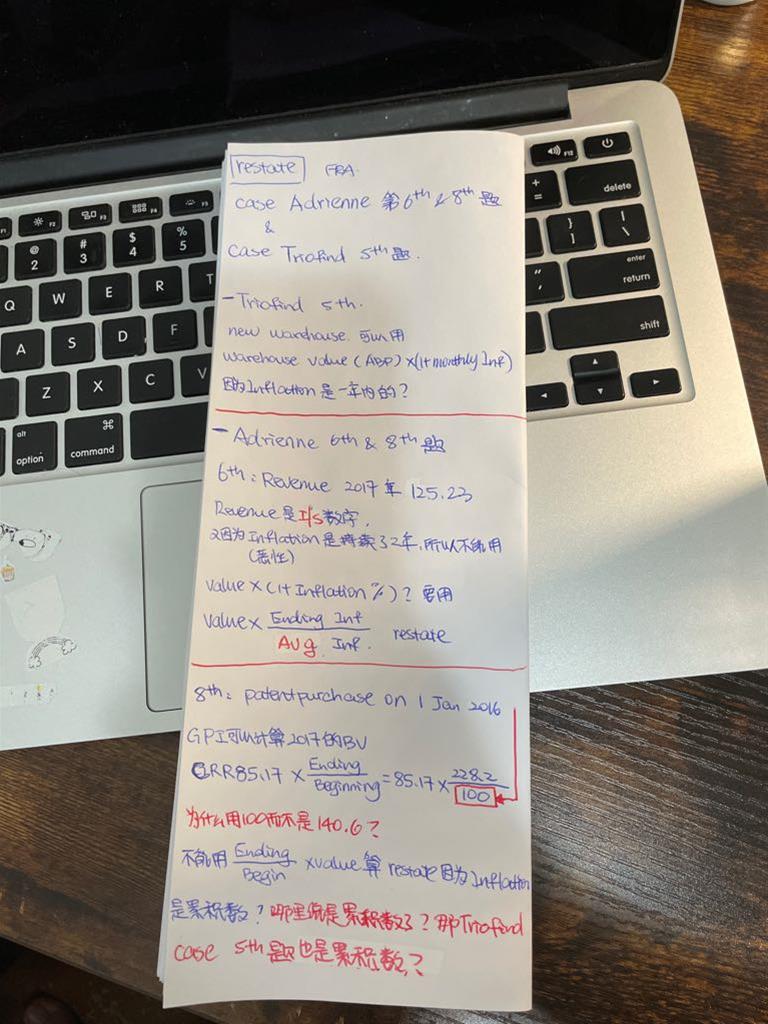 restate FRA.
case Adrienne 第6th & 8th 题
&
case Triofind 5th 题.
- Triofind 5th.
new warehouse. 可以用
warehouse value (ADP) ×(1+monthly Inf)
因为Inflation是一年内的?
- Adrienne 6th & 8th 题
6th: Revenue 2017年 125.23
Revenue是I/S数字,
又因为Inflation是持续了2年,所以不能用
(恶性)
value × (1+ Inflation %)? 要用
value × Ending Inf / Avg Inf. restate
8th: patent purchase on 1 Jan 2016
GPI可以计算2017的BV
CRR85.17 × Ending / Beginning = 85.17 × 228.2 / 100
为什么用100而不是140.6?
不能用 Ending / Begin × value 算 restate 因为 Inflation
是累积数? 哪里说是累积数了? 那Triofind
case 5th 题也是累积数?
F12
delete
return
enter
shift
option
alt
command
⌘
F1
F2
F3
F4
F5
@ 2
# 3
$ 4
% 5
Q W E R T
A S D F
Z X C V
+ =
} ]
| \
" '